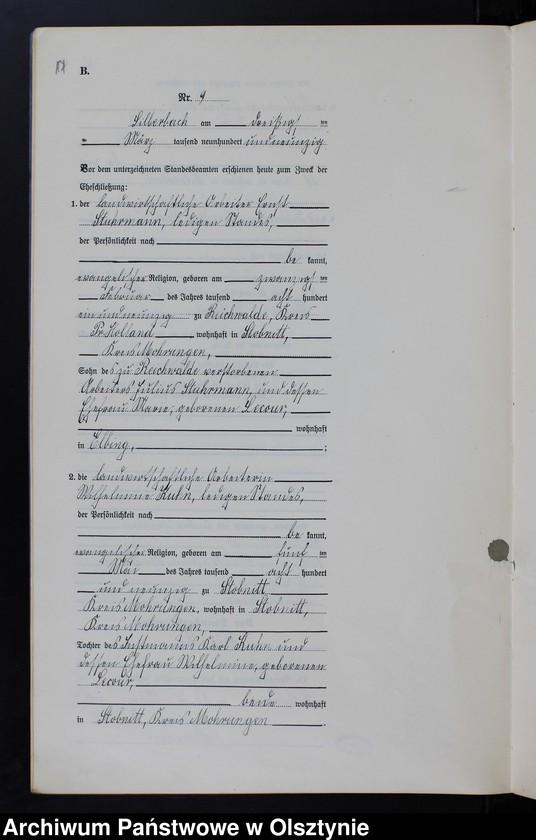 B.
Nr. 9
Silberbach am dreißigsten
März tausend neunhundert undneunzig
Vor dem unterzeichneten Standesbeamten erschienen heute zum Zweck der
Eheschließung:
1. der landwirtschaftliche Arbeiter Ernst
Stuhrmann, ledigen Standes,
der Persönlichkeit nach
be kannt,
evangelischer Religion, geboren am zwanzigsten
Februar des Jahres tausend acht hundert
einundneunzig zu Reichwalde, Kreis
Pr. Holland wohnhaft in Stobnitt,
Kreis Mohrungen,
Sohn des zu Reichwalde verstorbenen
Arbeiters Julius Stuhrmann, und dessen
Ehefrau Marie, geborenen Lecour,
wohnhaft
in Elbing, ;
2. die landwirtschaftliche Arbeiterin
Wilhelmine Kuhn, ledigen Standes,
der Persönlichkeit nach
be kannt,
evangelischer Religion, geboren am fünften
Mai des Jahres tausend acht hundert
und neunzig zu Stobnitt,
Kreis Mohrungen, wohnhaft in Stobnitt,
Kreis Mohrungen,
Tochter des Instmanns Karl Kuhn und
dessen Ehefrau Wilhelmine, geborenen
Lecour,
beide wohnhaft
in Stobnitt, Kreis Mohrungen .
Archiwum Państwowe w Olsztynie